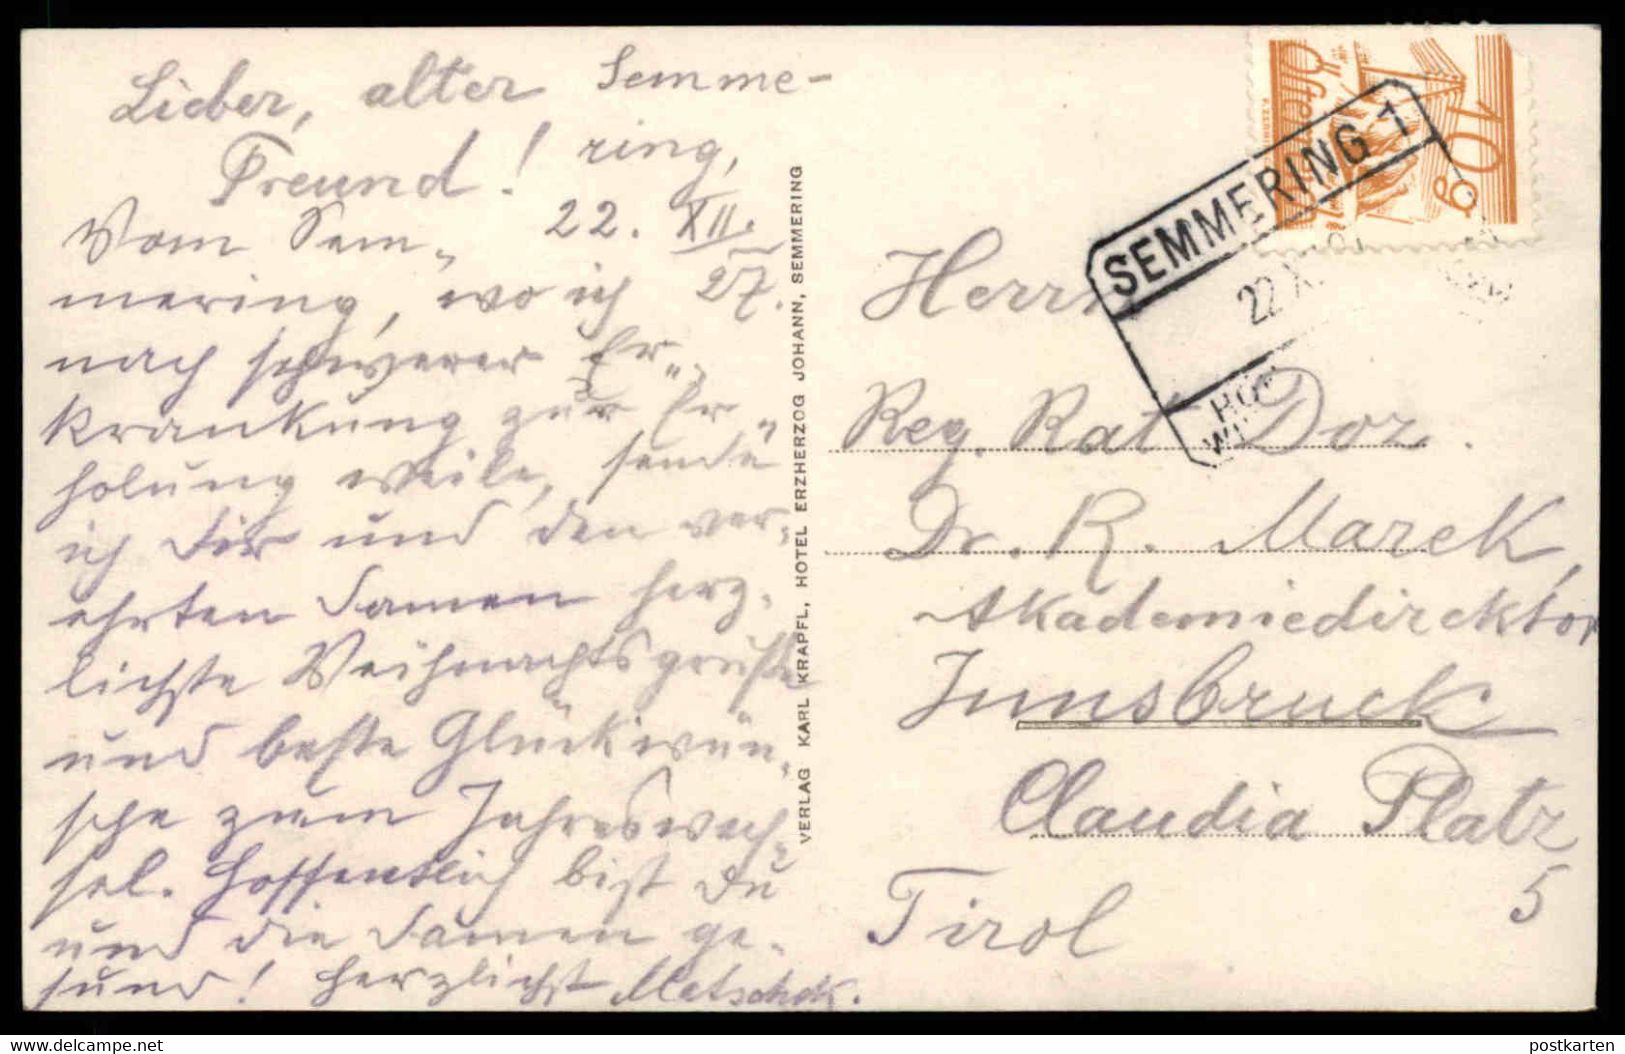 Lieber, alter
Freund!
Semme-
ring,
22. XII.
27.
Vom Sem„
mering, wo ich
nach schwerer Er„
krankung zur Er„
holung weile, sende
ich Dir und den ver-
ehrten Damen herz-
lichste Weihnachtsgrüße
und beste Glückwün-
sche zum Jahreswech-
sel. Hoffentlich bist Du
und die Damen ge-
sund! Herzlichst
VERLAG KARL KRAPFL, HOTEL ERZHERZOG JOHANN, SEMMERING
10 g
SEMMERING 1
22 X
Herrn
Reg. Rat Doz.
Dr. R. Marek,
Akademiedirektor
Innsbruck
Claudia Platz
5
Tirol
www.delcampe.net
postkarten